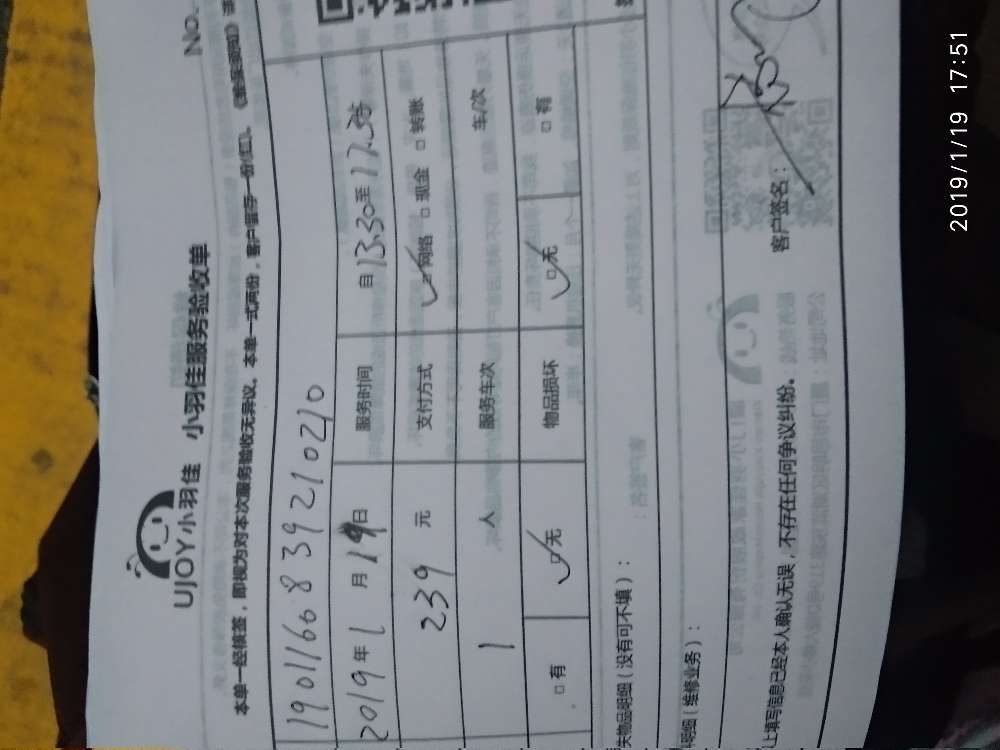 No.
UJOY小羽佳 小羽佳服务验收单
本单一经核签，即视为对本次服务验收无异议。本单一式两份，客户留存一份(汇)。
1901166839210210
2019年1月19日 服务时间 自13.30至17.30
239 元 支付方式 ☑网络 □现金 □转账
1 人 服务车次 车/次
□有 ☑无 物品损坏 ☑无 □有
失物品明细（没有可不填）：
明细（维修业务）：
上填写信息已经本人确认无误，不存在任何争议纠纷。 客户签名：
2019/1/19 17:51